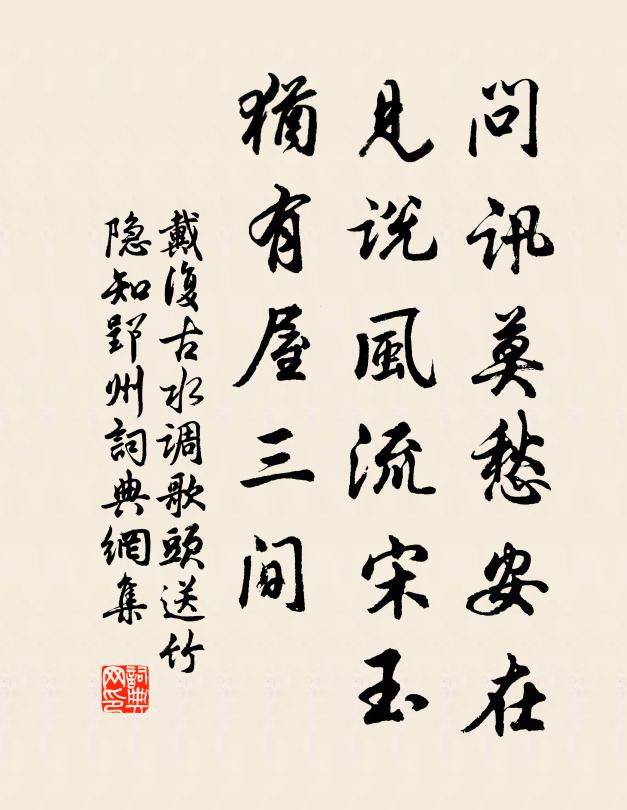 問訊莫愁安在
見说風流宋玉
猶有屋三间
戴復古水调歌頭送竹
隐知郢州詞典網集
詞典网印